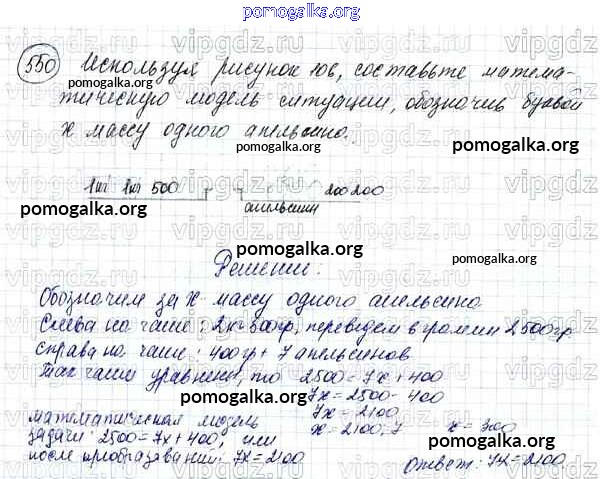 pomogalka.org
550 Используя рисунок 106, составьте матема-
тическую модель ситуации, обозначив буквой
x массу одного апельсина.
pomogalka.org
pomogalka.org
1кг 1кг 500 200 200
апельсин
pomogalka.org
pomogalka.org
pomogalka.org
Решение:
Обозначим за x массу одного апельсина
pomogalka.org
Слева на чаше: 2кг 500гр, переведем в граммы 2500гр.
справа на чаше: 400гр + 7 апельсинов
pomogalka.org
Так чаши уравнены, то 2500 = 7x + 400
7x = 2500 - 400
7x = 2100
x = 2100:7 x = 300
математическая модель
задачи: 2500 = 7x + 400, или
после преобразований: 7x = 2100
pomogalka.org
ответ: 7x = 2100
pomogalka.org